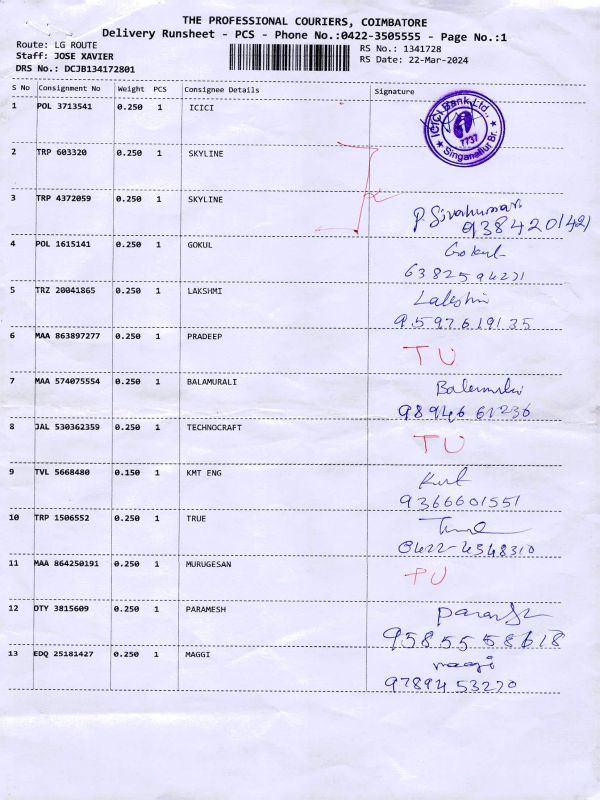 THE PROFESSIONAL COURIERS, COIMBATORE
Delivery Runsheet - PCS - Phone No.:0422-3505555 - Page No.:1
Route: LG ROUTE
Staff: JOSE XAVIER
DRS No.: DCJB134172801
RS No.: 1341728
RS Date: 22-Mar-2024
S No Consignment No Weight PCS Consignee Details Signature
1 POL 3713541 0.250 1 ICICI
ICICI Bank Ltd.,
1737
★ Singanallur Br. ★
2 TRP 603320 0.250 1 SKYLINE
3 TRP 4372059 0.250 1 SKYLINE P. Sivakumar
9384201421
4 POL 1615141 0.250 1 GOKUL Gokul
5 TRZ 20041865 0.250 1 LAKSHMI
9597619135
6 MAA 863897277 0.250 1 PRADEEP TU
7 MAA 574075554 0.250 1 BALAMURALI Balamurali
98946 61236
8 JAL 530362359 0.250 1 TECHNOCRAFT TU
9 TVL 5668480 0.150 1 KMT ENG
9366601551
10 TRP 1506552 0.250 1 TRUE
0422-4348310
11 MAA 864250191 0.250 1 MURUGESAN TU
12 OTY 3815609 0.250 1 PARAMESH
9585558618
13 EDQ 25181427 0.250 1 MAGGI maggi
9789453270